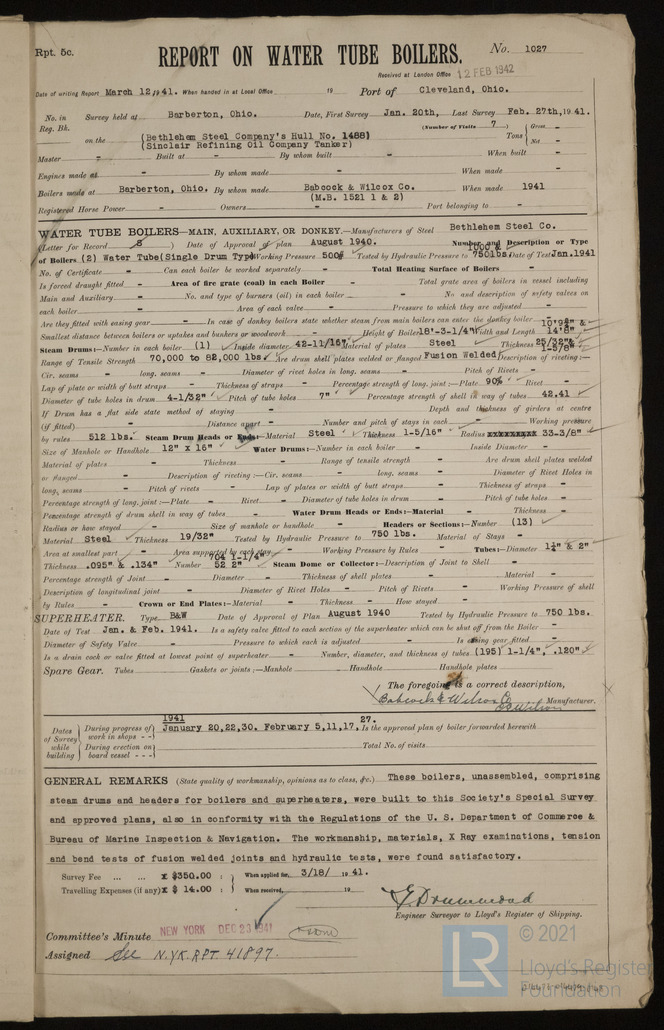 Rpt. 5c.
REPORT ON WATER TUBE BOILERS. No. 1027
Received at London Office 12 FEB 1942
Date of writing Report March 12, 1941. When handed in at Local Office 19 Port of Cleveland, Ohio.
No. in Survey held at Barberton, Ohio. Date, First Survey Jan. 20th, Last Survey Feb. 27th, 1941.
Reg. Bk. (Number of Visits 7)
on the (Bethlehem Steel Company's Hull No. 1488) Tons { Gross -
(Sinclair Refining Oil Company Tanker) Net -
Master - Built at - By whom built - When built -
Engines made at - By whom made - When made -
Boilers made at Barberton, Ohio. By whom made Babcock & Wilcox Co. When made 1941
(M.B. 1521 1 & 2)
Registered Horse Power - Owners - Port belonging to -
WATER TUBE BOILERS—MAIN, AUXILIARY, OR DONKEY.—Manufacturers of Steel Bethlehem Steel Co.
(Letter for Record S ) Date of Approval of plan August 1940. Number and Description or Type
of Boilers (2) Water Tube(Single Drum Type) Working Pressure 500# Tested by Hydraulic Pressure to 1000 & 750lbs. Date of Test Jan.1941
No. of Certificate - Can each boiler be worked separately - Total Heating Surface of Boilers -
Is forced draught fitted - Area of fire grate (coal) in each Boiler - Total grate area of boilers in vessel including
Main and Auxiliary - No. and type of burners (oil) in each boiler - No and description of safety valves on
each boiler - Area of each valve - Pressure to which they are adjusted -
Are they fitted with easing gear - In case of donkey boilers state whether steam from main boilers can enter the donkey boiler -
Smallest distance between boilers or uptakes and bunkers or woodwork - Height of Boiler 18'-3-1/4" Width and Length 14'8"
Steam Drums:—Number in each boiler (1) Inside diameter 42-11/16" Material of plates Steel Thickness 25/32" & 1-5/8"
Range of Tensile Strength 70,000 to 82,000 lbs. Are drum shell plates welded or flanged Fusion Welded Description of riveting:—
Cir. seams - long. seams - Diameter of rivet holes in long. seams - Pitch of Rivets -
Lap of plate or width of butt straps - Thickness of straps - Percentage strength of long. joint:—Plate 90% Rivet -
Diameter of tube holes in drum 4-1/32" Pitch of tube holes 7" Percentage strength of shell in way of tubes 42.41
If Drum has a flat side state method of staying - Depth and thickness of girders at centre
(if fitted) - Distance apart - Number and pitch of stays in each - Working pressure
by rules 512 lbs. Steam Drum Heads or Ends:—Material Steel Thickness 1-5/16" Radius 33-3/8"
Size of Manhole or Handhole 12" x 16" Water Drums:—Number in each boiler - Inside Diameter -
Material of plates - Thickness - Range of tensile strength - Are drum shell plates welded
or flanged - Description of riveting:—Cir. seams - long. seams - Diameter of Rivet Holes in
long. seams - Pitch of rivets - Lap of plates or width of butt straps - Thickness of straps -
Percentage strength of long. joint:—Plate - Rivet - Diameter of tube holes in drum - Pitch of tube holes -
Percentage strength of drum shell in way of tubes - Water Drum Heads or Ends:—Material - Thickness -
Radius or how stayed - Size of manhole or handhole - Headers or Sections:—Number (13)
Material Steel Thickness 19/32" Tested by Hydraulic Pressure to 750 lbs. Material of Stays -
Area at smallest part - Area supported by each stay - Working Pressure by Rules - Tubes:—Diameter 1¼" & 2"
Thickness .095" & .134" Number 704 1-1/4" 52 2" Steam Dome or Collector:—Description of Joint to Shell -
Percentage strength of Joint - Diameter - Thickness of shell plates - Material -
Description of longitudinal joint - Diameter of Rivet Holes - Pitch of Rivets - Working Pressure of shell
by Rules - Crown or End Plates:—Material - Thickness - How stayed -
SUPERHEATER. Type B&W Date of Approval of Plan August 1940 Tested by Hydraulic Pressure to 750 lbs.
Date of Test Jan. & Feb. 1941. Is a safety valve fitted to each section of the superheater which can be shut off from the Boiler -
Diameter of Safety Valve - Pressure to which each is adjusted - Is easing gear fitted -
Is a drain cock or valve fitted at lowest point of superheater - Number, diameter, and thickness of tubes (195) 1-1/4" .120"
Spare Gear. Tubes - Gaskets or joints:—Manhole - Handhole - Handhole plates -
The foregoing is a correct description,
Babcock & Wilcox Co. Manufacturer.
Dates of Survey while building { During progress of work in shops - - 1941 January 20,22,30. February 5,11,17, 27. Is the approved plan of boiler forwarded herewith
During erection on board vessel - - - Total No. of visits
GENERAL REMARKS (State quality of workmanship, opinions as to class, &c.) These boilers, unassembled, comprising
steam drums and headers for boilers and superheaters, were built to this Society's Special Survey
and approved plans, also in conformity with the Regulations of the U. S. Department of Commerce &
Bureau of Marine Inspection & Navigation. The workmanship, materials, X Ray examinations, tension
and bend tests of fusion welded joints and hydraulic tests, were found satisfactory.
Survey Fee ... ... x $350.00 : When applied for, 3/18/ 1941.
Travelling Expenses (if any) x $ 14.00 : When received, 19
J. Drummond
Engineer Surveyor to Lloyd's Register of Shipping.
Committee's Minute NEW YORK DEC 23 1941
Assigned See N.YK. RPT. 41897.
LR
© 2021
Lloyd's Register
Foundation